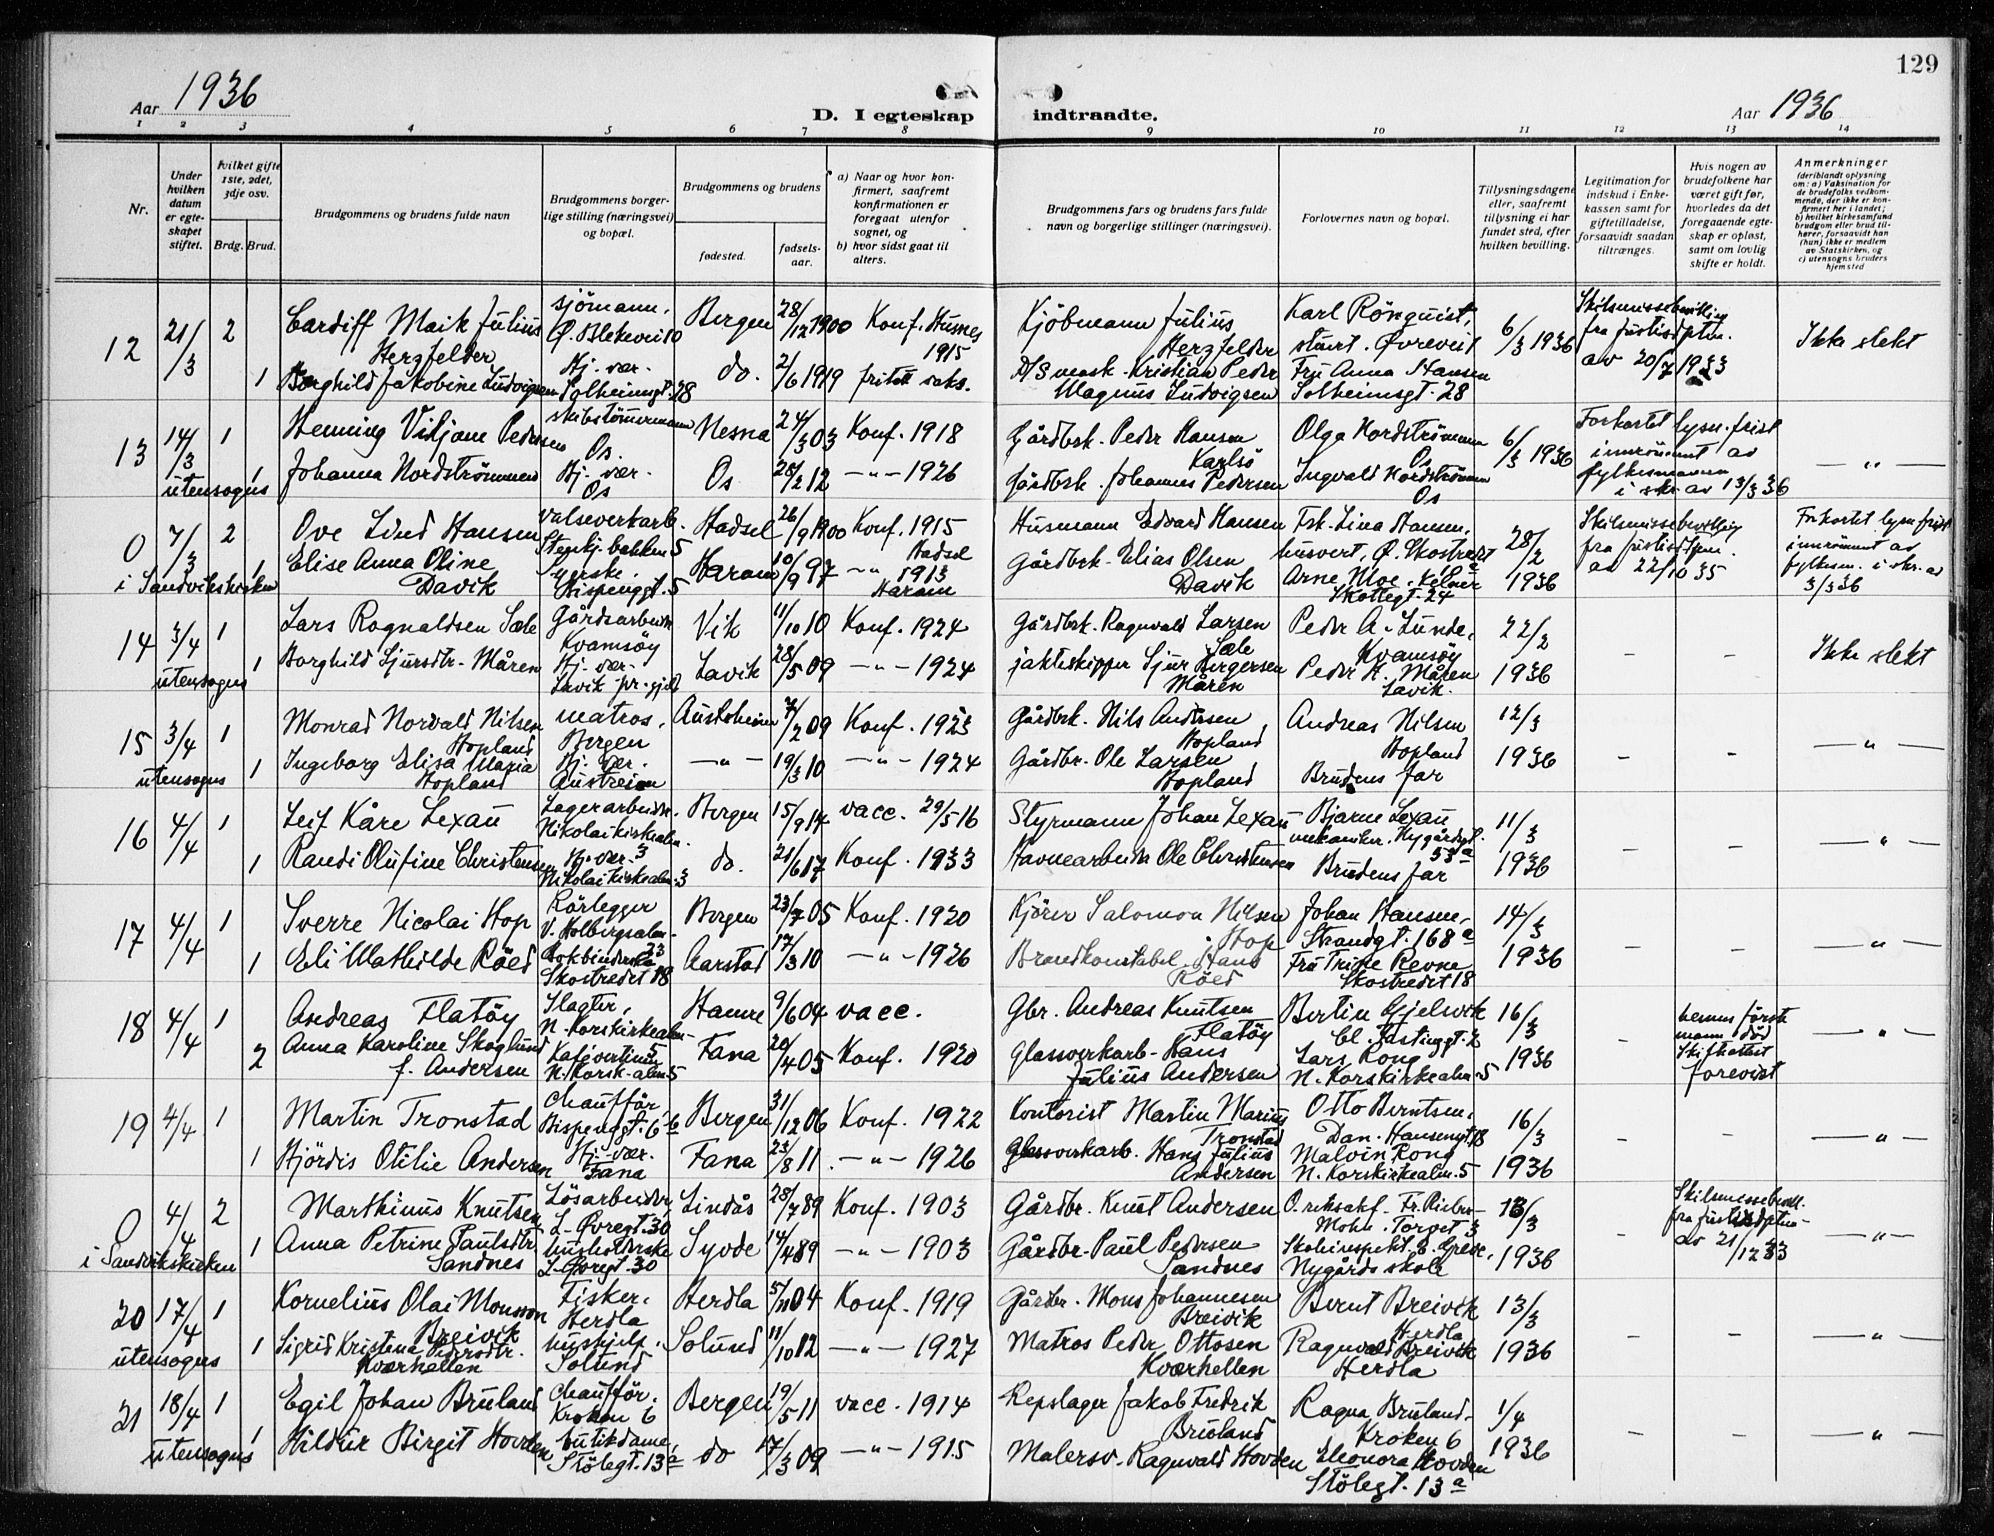 129
Aar 1936
D. I egteskap indtraadte.
Aar 1936
1 2 3 4 5 6 7 8 9 10 11 12 13 14
Nr.
Under hvilken datum er egteskapet stiftet.
Hvilket gifte 1ste, 2det, 3dje osv.
Brdg. Brud.
Brudgommens og brudens fulde navn
Brudgommens borgerlige stilling (næringsvei) og bopæl.
Brudgommens og brudens
fødested.
fødselsaar.
a) Naar og hvor konfirmert, saafremt konfirmationen er foregaat utenfor sognet, og
b) hvor sidst gaat til alters.
Brudgommens fars og brudens fars fulde navn og borgerlige stillinger (næringsvei).
Forlovernes navn og bopæl.
Tillysningsdagene eller, saafremt tillysning ei har fundet sted, efter hvilken bevilling.
Legitimation for indskud i Enkekassen samt for giftetilladelse, forsaavidt saadan tiltrænges.
Hvis nogen av brudefolkene har været gift før, hvorledes da det foregaaende egteskap er opløst, samt om lovlig skifte er holdt.
Anmerkninger
(deriblandt oplysning om: a) Vaksination for de brudefolks vedkommende, der ikke er konfirmert her i landet; b) hvilket kirkesamfund brudgom eller brud tilhører, forsaavidt han (hun) ikke er medlem av Statskirken, og c) utensogns bruders hjemsted
12 21/3 2 Cardiff Maik Julius Herzfelder sjömann, Ø. Blekevei 10 Bergen 28/12 1900 Konf. Husnes 1915 Kjöbmann Julius Herzfelder Karl Rönquist, stuert. Øvreveit 6/3 1936 Skilsmissebevilling fra Justisdptm. av 20/7 1933 Ikke slekt
1 Borghild Jakobine Ludvigsen Hj. vær. Solheimsgt. 28 do. 2/6 1919 fritatt saks. D/S mask. Kristian Peder Magnus Ludvigsen Fru Anna Hansen Solheimsgt. 28
13 14/3 1 Henning Viljam Pedersen skibstömmermann Os. Nesna 24/3 03 Konf. 1918 Gårdbrk. Peder Hansen Karlsö Olga Nordströmmen Os 6/3 1936 Forkortet lysn. frist innrömmet av fylkesmannen i skr. av 13/3 36 — " —
utensogns 1 Johanna Nordströmmen Hj. vær. Os Os 28/2 12 — " — 1926 Gårdbrk. Johannes Pedersen Ingvald Nordströmmen Os
0 7/3 2 Ove Lund Hansen valseverkarb. Stenkj.bakken 5 Hadsel 26/9 1900 Konf. 1915 Hadsel Husmann Edvard Hansen Frk. Lina Hansen, husvert, Ø. Skostredet 28/2 1936 Skilsmissebevilling fra Justisdptm. av 22/10 35 Forkortet lysn. frist innrömmet av fylkesm. i skr. av 3/3 36
i Sandvikskirken 1 Elise Anna Oline Davik Syerske. Bispenggt. 5 Haram 10/9 97 — " — 1913 Haram Gårdbrk. Elias Olsen Davik Arne Moe, kelner Skottegt. 24
14 3/4 1 Lars Ragnaldsen Sæle Gårdsarbeider Kvamsöy Vik 11/10 10 Konf. 1924 Gårdbrk. Ragnvald Larsen Sæle Peder A. Lunde, Kvamsöy 22/2 1936 – – Ikke slekt
utensogns 1 Borghild Sjursdtr. Måren Hj. vær. Lavik pr.gjeld Lavik 28/5 09 — " — 1924 jakteskipper Sjur Birgersen Måren Peder K. Måren Lavik.
15 3/4 1 Monrad Norvald Nilsen Hopland matros, Bergen Austrheim 7/2 09 Konf. 1923 Gårdbrk. Nils Andersen Hopland Andreas Nilsen Hopland 12/3 1936 – – — " —
utensogns 1 Ingeborg Elisa Maria Hopland Hj. vær. Austreim — " — 19/3 10 — " — 1924 Gårdbr. Ole Larsen Hopland Brudens far
16 4/4 1 Leif Kåre Lexau Lagerarbeider. Nikolaikirkealm. 3 Bergen 15/9 14 vacc. 29/5 16 Styrmann Johan Lexau Bjarne Lexau mekaniker. Nygårdsgt. 53a 11/3 1936 – – "
1 Randi Olufine Christensen Hj. vær. Nikolaikirkealm. 3 do. 21/6 17 Konf. 1933 Havnearbeider Ole Christensen Brudens far
17 4/4 1 Sverre Nicolai Hop Rörlegger V. Holbergsalm. 23 Bergen 23/7 05 Konf. 1920 Kjörer Salomon Nilsen Hop Johan Hansen, Strandgt. 168a 14/3 1936 – – — " —
1 Eli Mathilde Röed Bokbinderske Skostredet 18 Aarstad 17/3 10 — " — 1926 Brandkonstabel Hans Röed Fru Trine Revne Skostredet 18
18 4/4 1 Andreas Flatöy Slagter, N. Korskirkealm. 5 Hamre 9/6 04 vacc. Gbr. Andreas Knutsen Flatöy Bertin Gjelsvik Cl. Fastinggt. 2 16/3 1936 – hennes første mann död Skifteattest forevist — " —
2 Anna Karoline Skoglund f. Andersen Kafévertinne N. Korsk.alm. 5 Fana 20/4 05 Konf. 1920 Glassverkarb. Hans Julius Andersen Lars Rong N. Korskirkealm. 5
19 4/4 1 Martin Tronstad chaufför, Bispenggt. 6b Bergen 31/12 06 Konf. 1922 Kontorist Martin Marius Tronstad Otto Berntsen, Dan. Hansensgt. 18 16/3 1936 – – — " —
1 Hjördis Otilie Andersen Hj. vær. Fana Fana 23/8 11 — " — 1926 Glassverkarb. Hans Julius Andersen Malvin Rong N. Korskirkealm. 5
0 4/4 2 Marthinus Knutsen Lösarbeider, L. Øvregt. 30 Lindås 28/7 89 Konf. 1903 Gårdbr. Knut Andersen O.r.saksf. Fr. Mohr. Torget 3 13/3 1936 Skilsmissebevill. fra Justisdptm. av 21/12 33 — " —
i Sandvikskirken 1 Anna Petrine Paulsdtr. Sandnes husholderske L. Øvregt. 30 Syvde 14/4 89 — " — 1903 Gårdbr. Paul Pedersen Sandnes Skoleinspekt. G. Greve, Nygårds skole
20 17/4 1 Kornelius Olai Monsson Breivik Fisker. Herdla Herdla 5/11 04 Konf. 1919 Gårdbr. Mons Johannesen Breivik Bernt Breivik Herdla 13/3 1936 – – — " —
utensogns 1 Sigrid Kristena Pedersdtr. Kværhellen hushjelp, Solund Solund 11/10 12 — " — 1927 Matros Peder Ottosen Kværhellen Ragnvald Breivik Herdla
21 18/4 1 Egil Johan Bruland chaufför. Kroken 6 Bergen 19/5 11 vacc. 1914 Repslager Jakob Fredrik Bruland Ragna Bruland. Kroken 6 1/4 1936 – – — " —
utensogns 1 Hildur Birgit Hovden butikdame, Stölegt. 13a do 17/3 09 — " — 1915 Malersv. Ragnvald Hovden Eleonora Hovden Stölegt. 13a